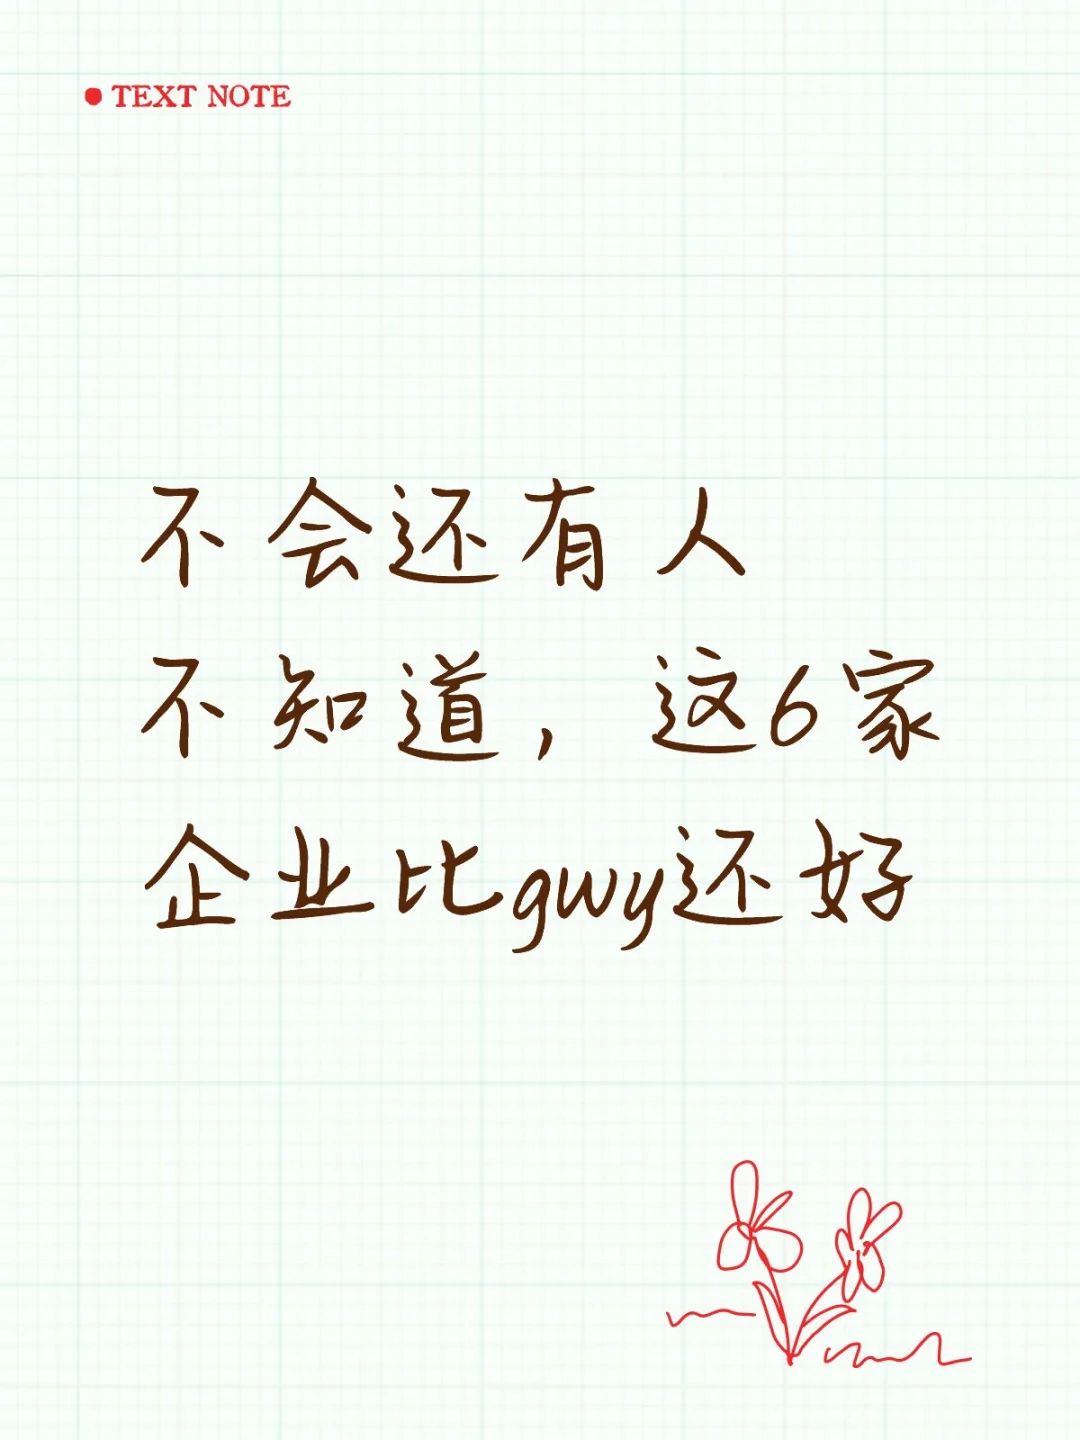 TEXT NOTE
不会还有人
不知道，这6家
企业比gwy还好